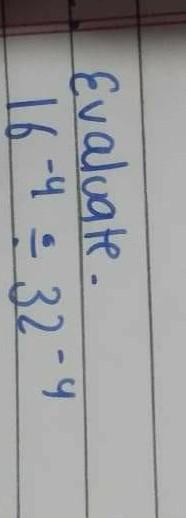 Evaluate.
16⁻⁴ ÷ 32⁻⁴